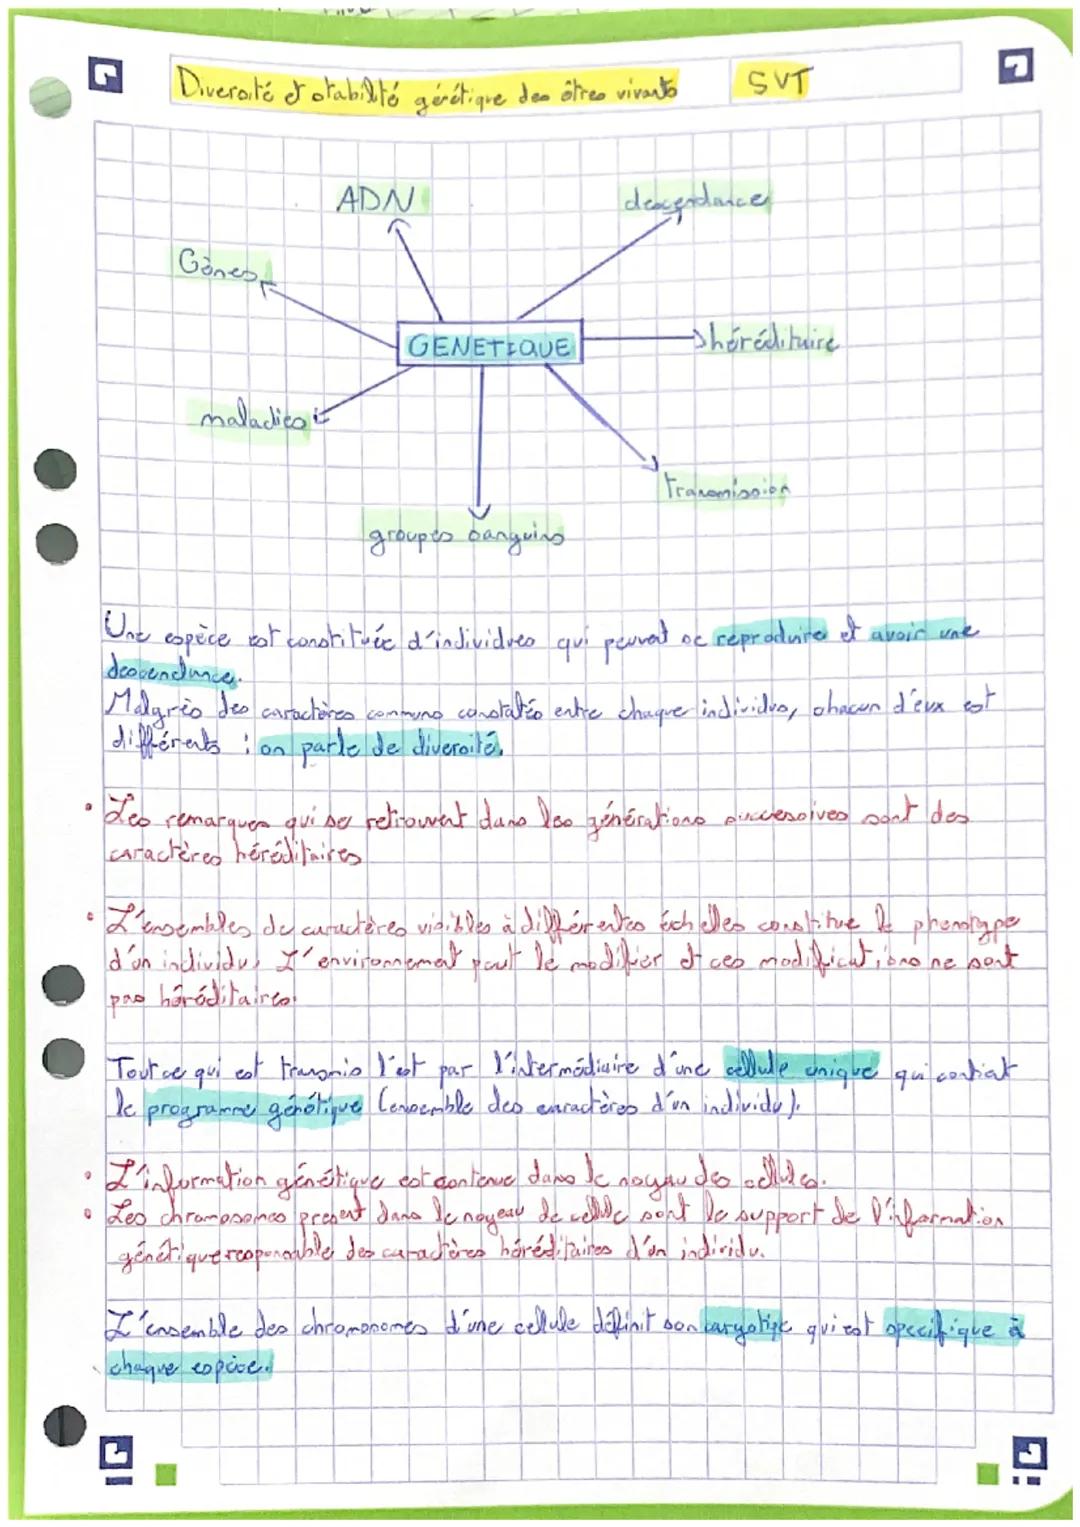 Diversité et stabilité génétique des êtres vivants
SVT
ADN
descendance
Gènes
GENETIQUE
héréditaire
maladies
transmission
groupes sanguins
Une espèce est constituée d'individus qui peuvent se reproduire et avoir une
descendance.
Malgrès des caractères communs constatés entre chaque individus, chacun d'eux est
différents : on parle de diversité.
• Les remarques qui se retrouvent dans les générations successives sont des
caractères héréditaires
• L'ensembles de caractères visibles à différentes échelles constitue le phenotype
d'un individu. L'environnement peut le modifier et ces modifications ne sont
pas héréditaires.
Tout ce qui est transmis l'est par l'intermédiaire d'une cellule unique qui contient
le programme génétique (ensemble des caractères d'un individu).
• L'information génétique est contenue dans le noyau des cellules.
• Les chromosomes present dans le noyeau de cellule sont le support de l'information
génétique responsable des caractères héréditaires d'un individu.
L'ensemble des chromosomes d'une cellule définit son caryotype qui est specifique à
chaque espèce.